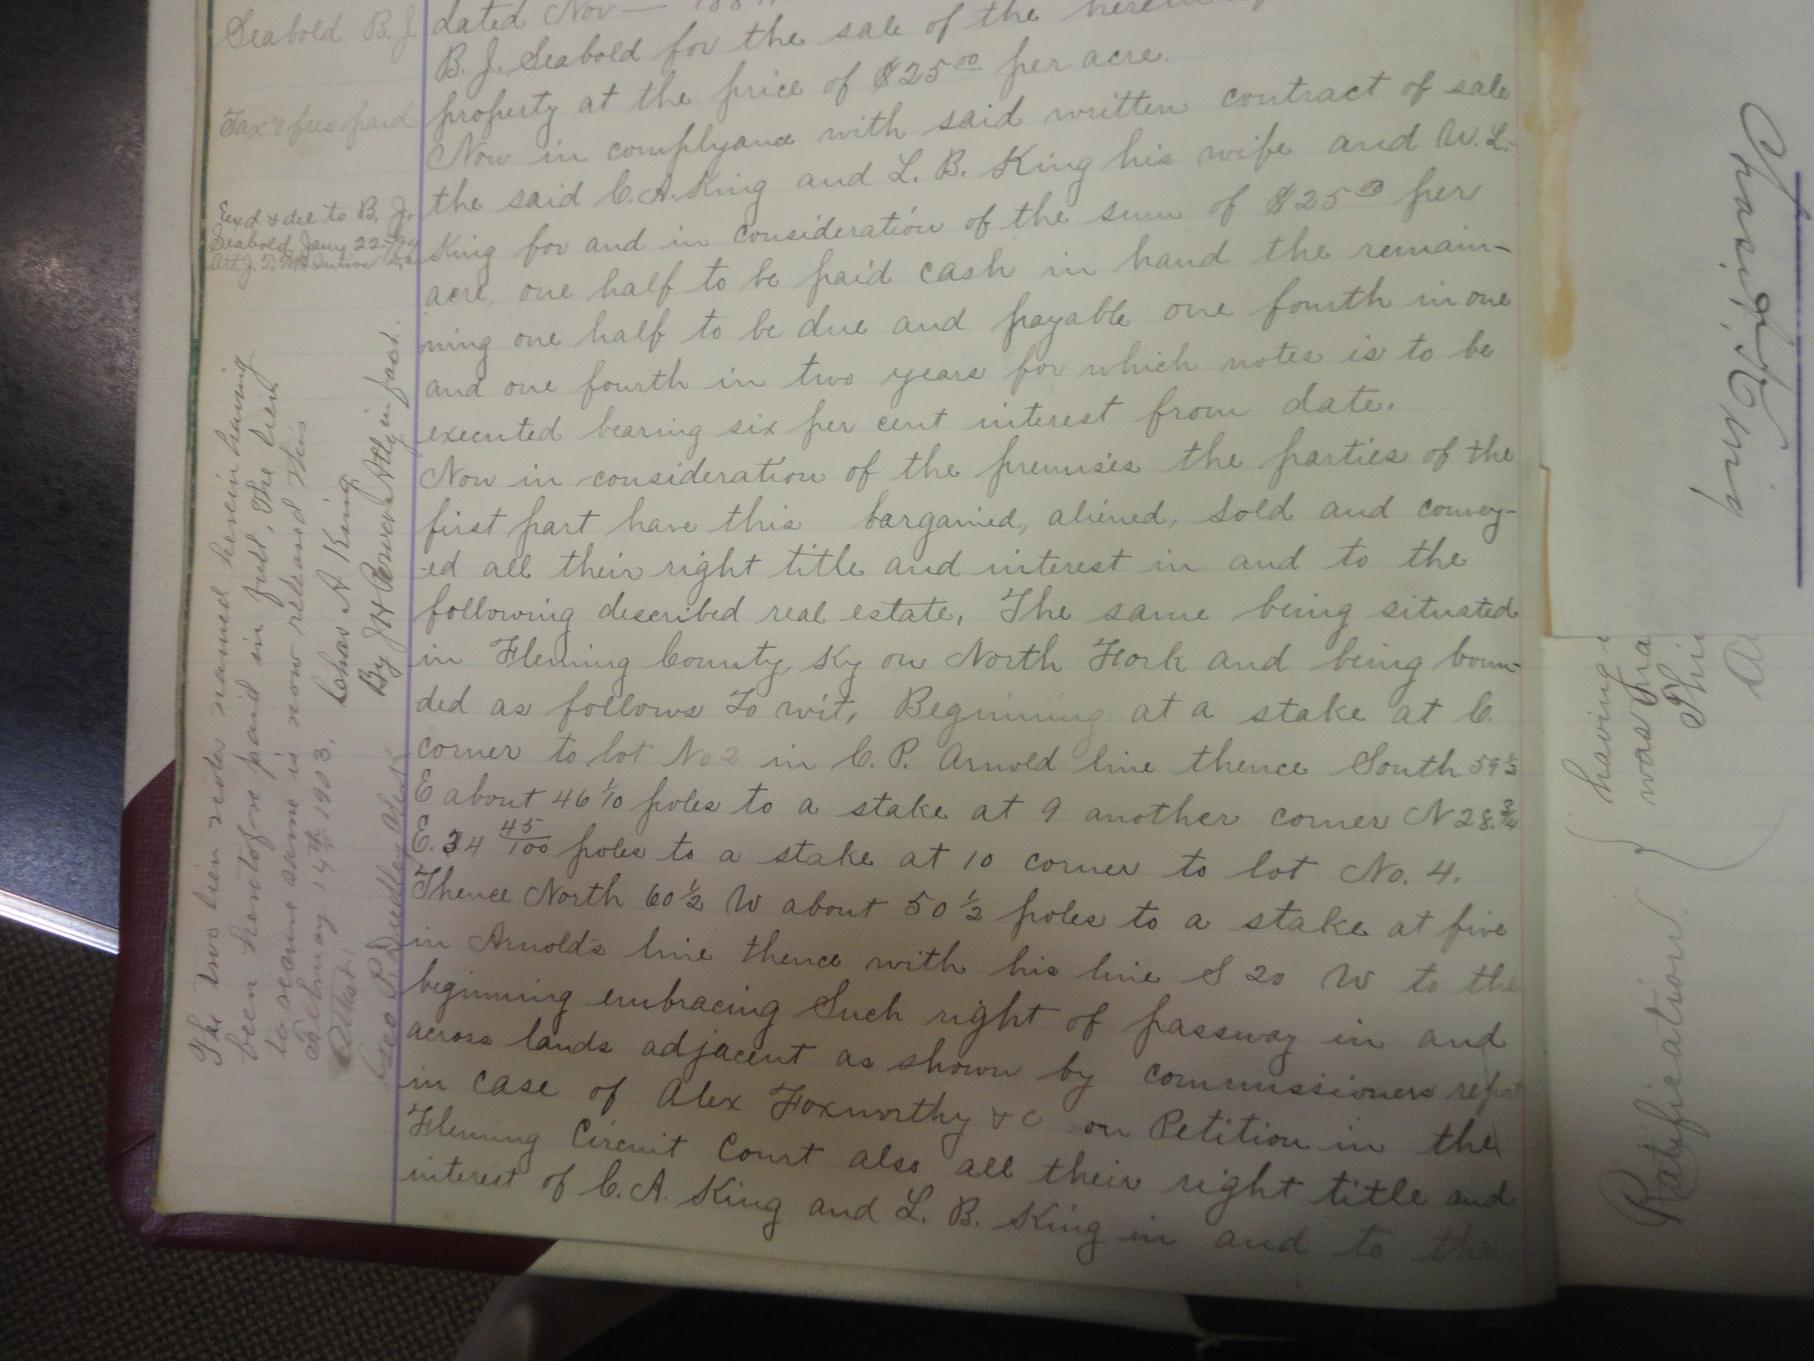 Seabold B. J.
Tax & fees paid
Exd & del to B. J.
Seabold Jany 22
Att. J. T.
dated Nov —
B. J. Seabold for the sale of the
property at the price of $25 00 per acre.
Now in complyance with said written contract of sale
the said C. A. King and L. B. King his wife and W. L.
King for and in consideration of the sum of $25 00 per
acre, one half to be paid cash in hand the remain-
ning one half to be due and payable one fourth in one
and one fourth in two years for which notes is to be
executed bearing six per cent interest from date.
Now in consideration of the premises the parties of the
first part have this bargained, aliened, sold and convey-
ed all their right title and interest in and to the
following described real estate, The same being situated
in Fleming County, Ky on North Fork and being boun-
ded as follows To wit, Beginning at a stake at C
corner to lot No 2 in C. P. Arnold line thence South 59 1/2
E about 46 1/10 poles to a stake at 9 another corner N 28 3/4
E. 34 45/100 poles to a stake at 10 corner to lot No. 4.
Thence North 60 1/2 W about 50 1/2 poles to a stake at five
in Arnolds line thence with his line S 20 W to the
beginning embracing Such right of passway in and
across lands adjacent as shown by commissioners report
in case of Alex Foxworthy & C on Petition in the
Fleming Circuit Court also all their right title and
interest of C. A. King and L. B. King in and to the
The two lien notes named herein having
been heretofore paid in full, The lien
to secure same is now released this
February 14th 1903.
Chas A King
By J H Power Atty in fact.
Attest,
Geo P. Dudley Clerk
Chas. A. King
having
was
Thi
Ratification